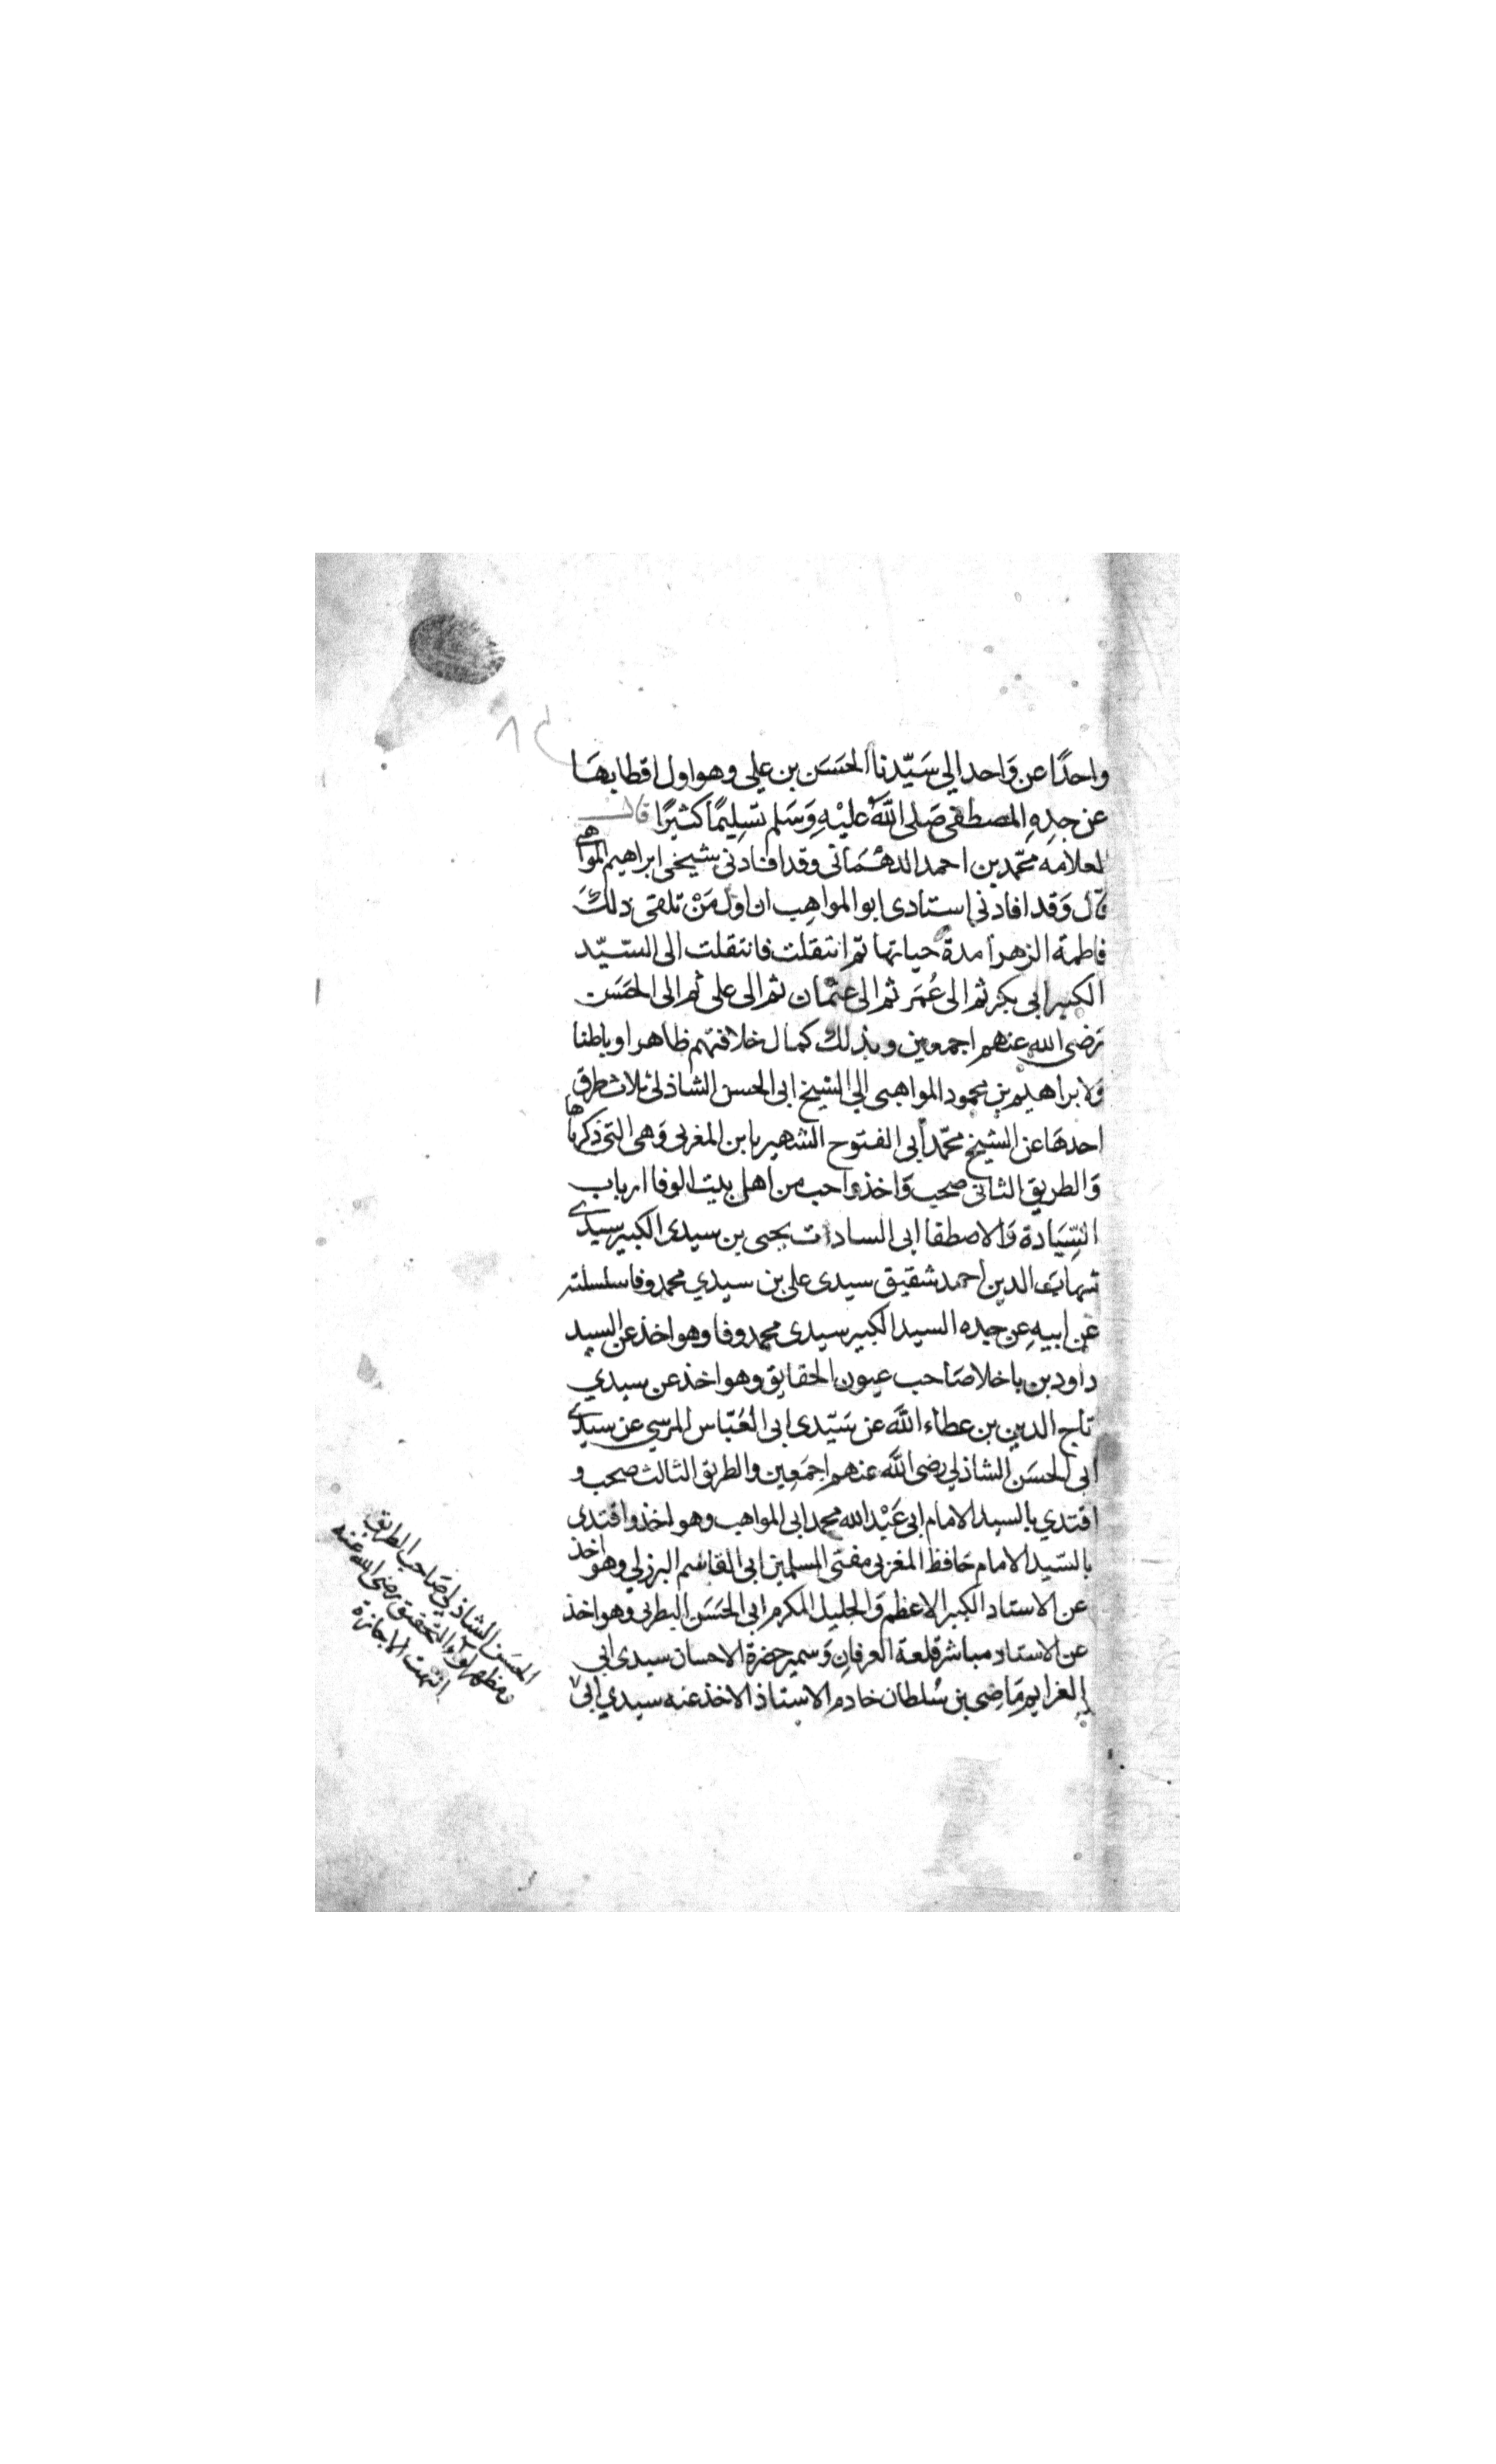 واحدًا عن وَاحد الي سَيّدنا الحَسَن بن علي وهو اول اقطابهَا
عن جدهِ المصطفى صَلى اللّه عليْهِ وَسَلم تسليمًا كثيرًا قال
العلامه محمّد بن احمد الدهْمَانى وقد افادنى شيخى ابراهيم المواهبى
قال وَقد افادنى استادى ابو المواهب ان اول مَنْ تلقى ذلك
فاطمة الزهرا مدة حياتها ثم انتقلت فانتقلت الى السّيّد
الكبير ابى بكر ثم الى عُمَر ثم الى عثمان ثم الى على ثم الى الحَسَن
رَضى الله عنهم اجمعين وبذلك كمال خلافتهم ظاهرا وباطنا
وَلابراهيم بن محمود المواهبى الي الشيخ ابى الحسن الشاذلى ثلاث طرق
احدهَا عن الشيخ محمّد ابى الفتوح الشهير بابن المغربى وَهى التى ذكرناها
وَالطريق الثانى صحب وَاخذ واحب من اهل بيت الوفا ارباب
السِّيَادة وَالاصطفا ابى السادات يحيى بن سيدى الكبير سيدي
شهاب الدين احمد شقيق سيدى على بن سيدي محمد وفا سلسلته
عن ابيهِ عن جده السيد الكبير سيدى محمد وفا وهو اخذ عن السيد
داود بن باخلا صَاحب عيون الحقايق وهو اخذ عن سيدي
تاج الدين بن عطاء اللّه عن سَيّدى ابى العُبّاس المرسي عن سيدي
ابى الحسَن الشاذلي رضى اللّه عنهم اجمَعين والطريق الثالث صحب و
اقتدي بالسيد الامام ابى عَبْد الله محمد ابى المواهب وهو اخذ واقتدى
بالسّيد الامام حَافظ المغربى مفتى المسلمين ابى القاسم البرزلي وهو اخذ
عن الاستاد الكبير الاعظم وَالجليل المكرم ابى الحَسَن البطرنى وهو اخذ
عن الاستاد مباشر قلعة العرفان وَسمير حضرة الاحسان سيدى ابي
العزايم مَاضى بن سُلطان خادم الاستاذ الاخذ عنه سيدي ابى
الحسَن الشاذلي صَاحب الطريق
ومظهر لوآء التحقيق رضى الله عنه
انتهت الاجازة